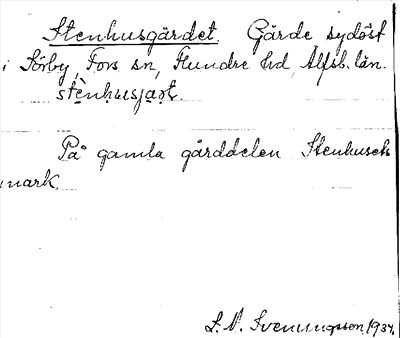 Stenhusgärdet. Gärde sydöst
i Sörby Fors sn, Flundre hd, Älfsb. län.
stènhusjaṛt
På gamla gårddelen Stenhusets
mark.
S. N. Svenningsson, 1934.